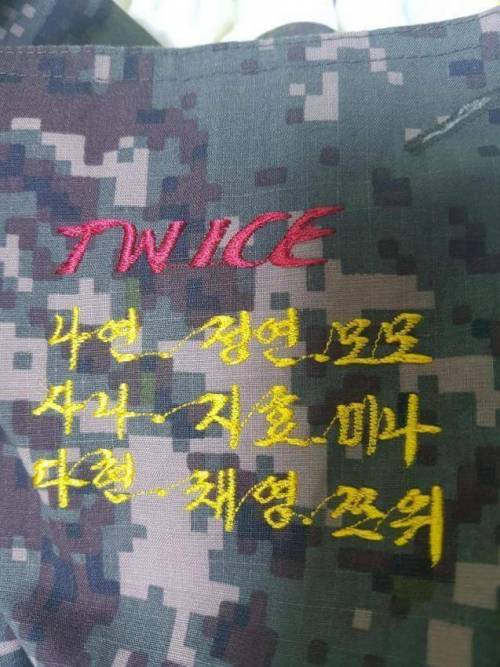 TWICE
나연. 정연. 모모
사나. 지효. 미나
다현. 채영. 쯔위